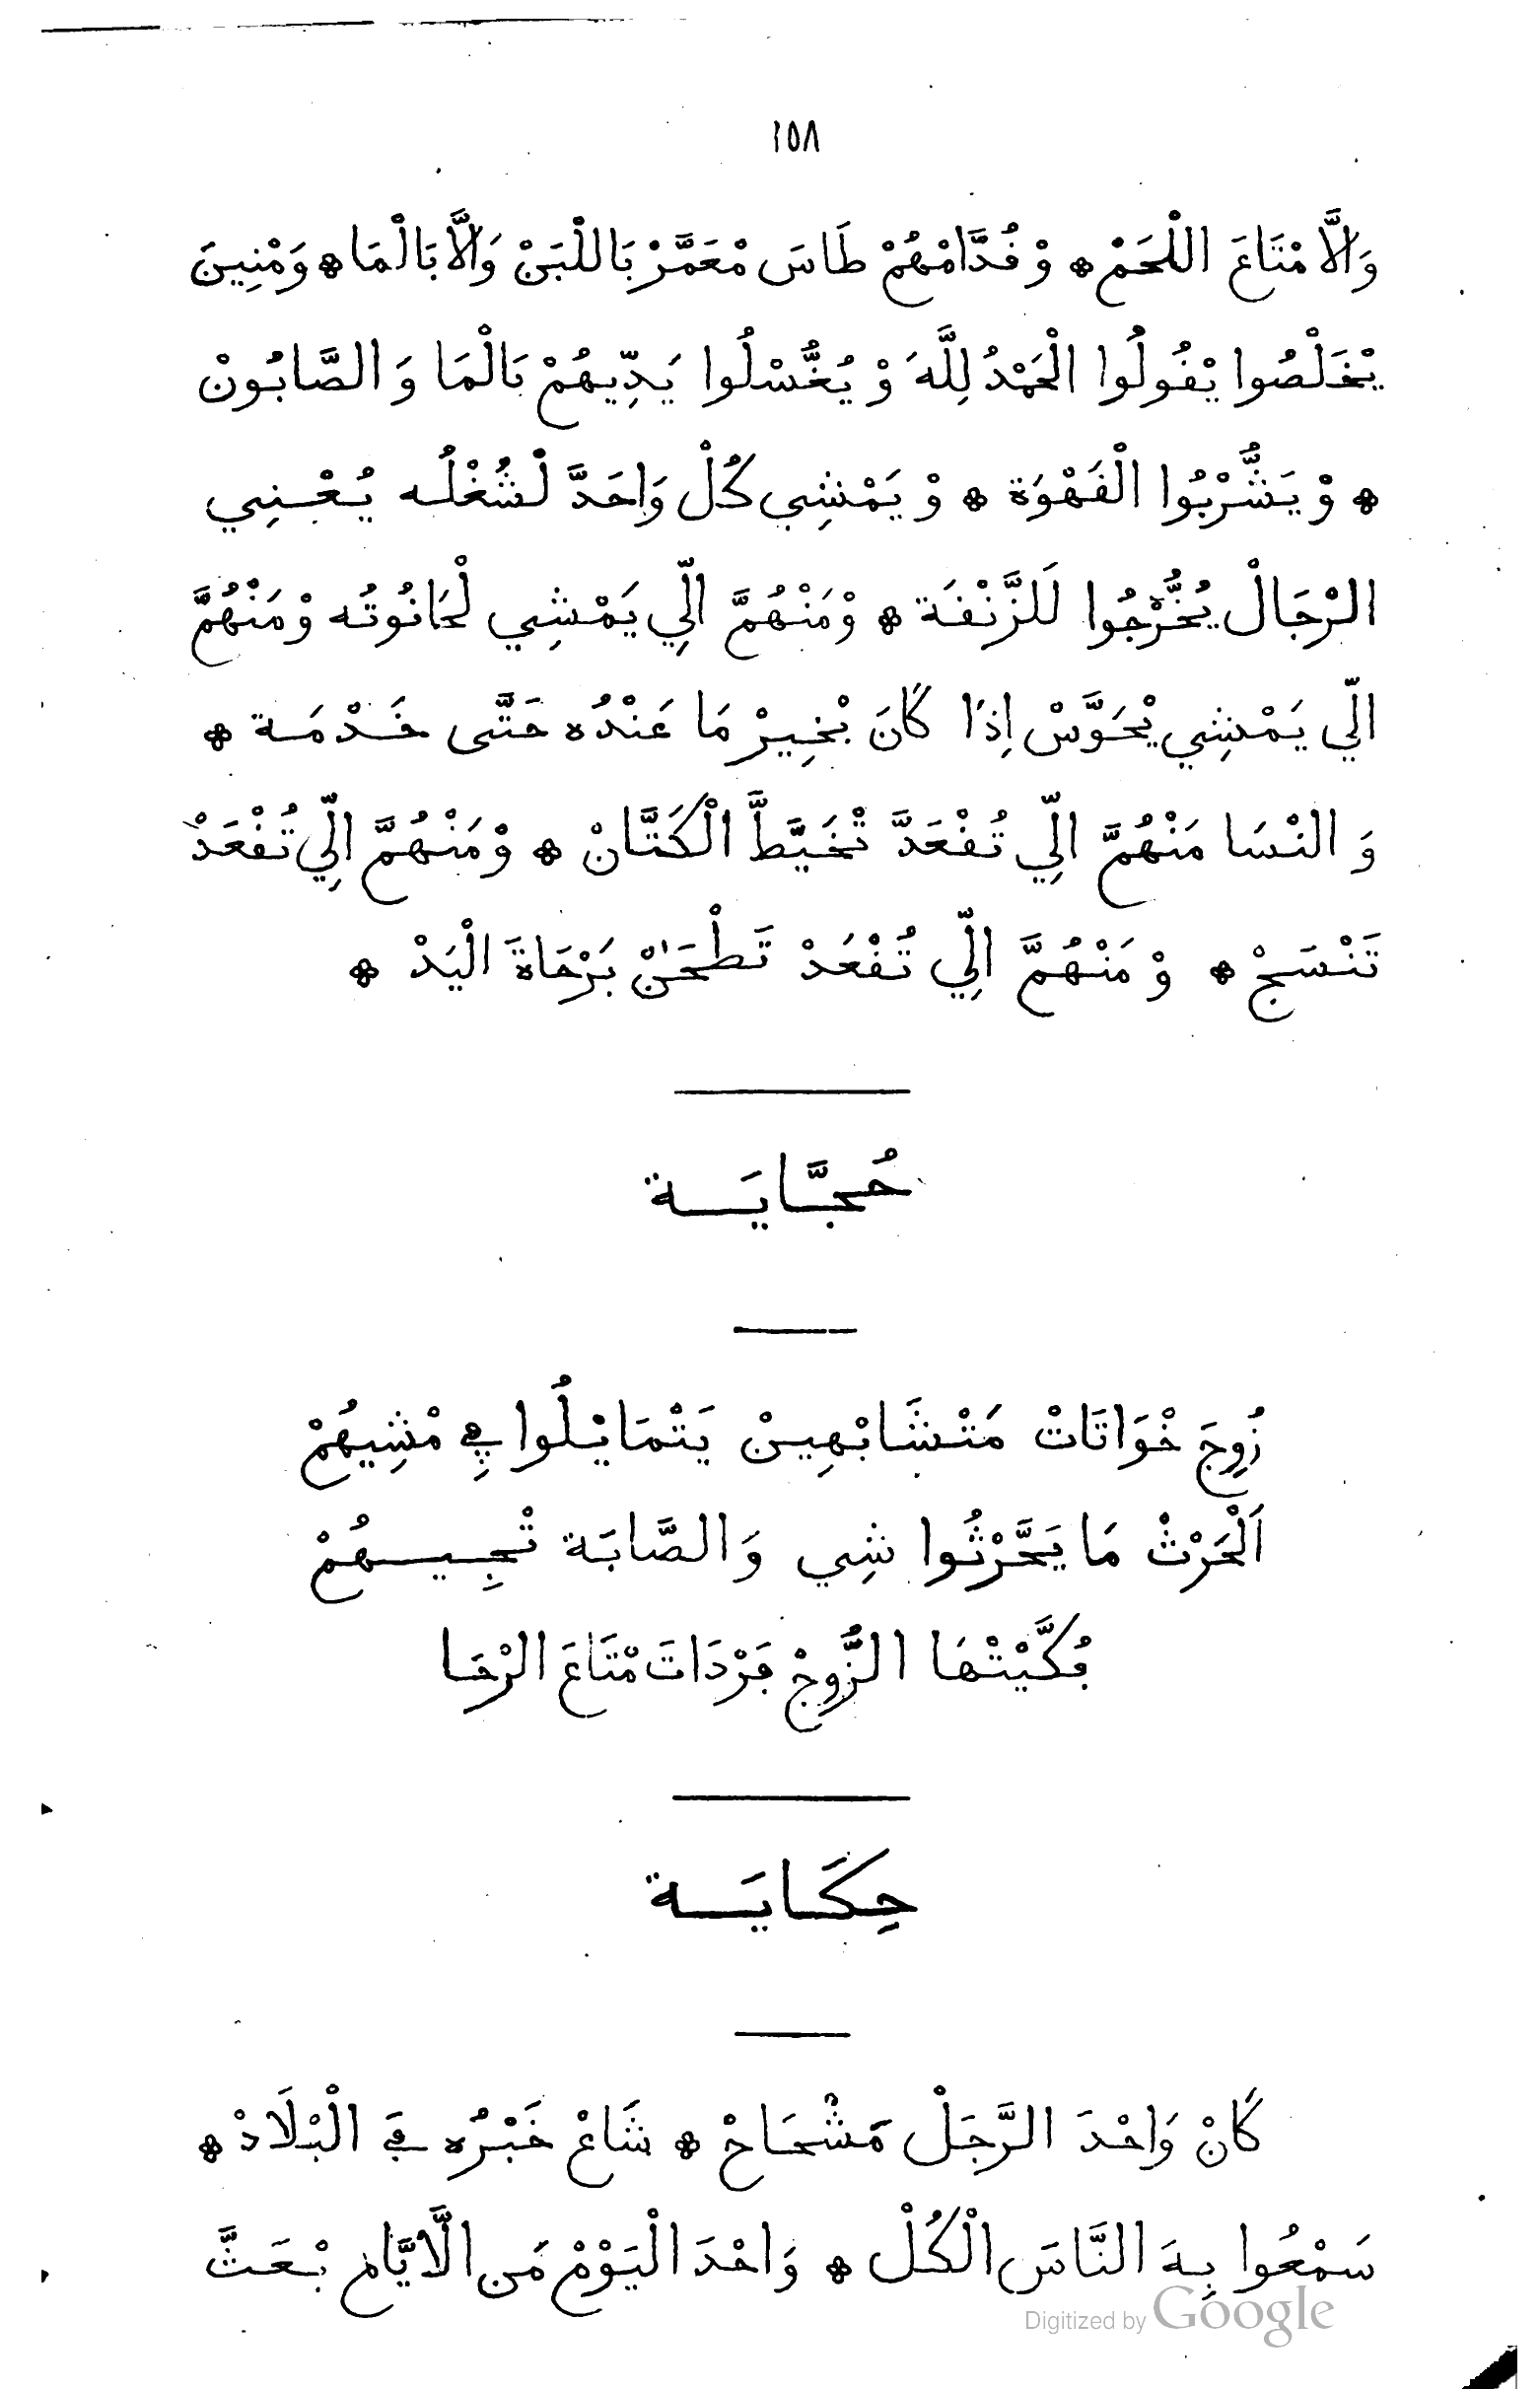 ١٥٨
وَالَّا مْتَاعَ اللْحَمْ * وْ ڧُدَّامْهُمْ طَاسَ مْعَمَّرْ بَاللْبَنْ وَالَّا بَالْمَا * وَمْنِينَ
يْخَلْصُوا يْڧُولُوا الْحَمْدُ لِلَّهَ وْ يُغُّسْلُوا يَدِّيهُمْ بَالْمَا وَ الصَّابُونْ
* وْ يَشُّرْبُوا الْڧَهْوَة * وْ يَمْشِي كُلْ وَاحَدَّ لْشُغْلُه يُعْنِي
الرْجَالْ يُخُّرْجُوا لَلزَّنْڧَة * وْمَنْهُمَّ الِّي يَمْشِي لْحَانُوتُه وْمَنْهُمَّ
الِّي يَمْشِي يْحَوَّسْ اِذَا كَانَ بْخِيرْ مَا عَنْدُه حَتَّى خَدْمَة *
وَ النْسَا مَنْهُمَّ الِّي تُڧْعَدَّ تْخَيَّطَّ الْكَتَّانْ * وْمَنْهُمَّ الِّي تُڧْعَدْ
تَنْسَجْ * وْ مَنْهُمَّ الِّي تُڧْعَدْ تَطْحَنْ بَرْحَاةَ الْيَدْ *
حُجَّايَة
زُوجَ خْوَاتَاتْ مَتْشَابْهِينْ يَتْمَايْلُوا ڢِي مْشِيهُمْ
اَلْحَرْثْ مَا يَحَّرْثُوا شِي وَالصَّابَة تْجِيهُمْ
ڢُكَّيْتْهَا الزُّوجْ ڢَرْدَاتَ مْتَاعَ الرْحَا
حِكَايَة
كَانْ وَاحْدَ الرَّجَلْ مَشْحَاحْ * شَاعْ خَبْرُه ڢَي الْبْلَادْ *
سَمْعُوا بِهَ النَّاسَ الْكُلْ * وَاحْدَ الْيَوْمْ مَن الَّايَّام بْعَثَّ
Digitized by Google